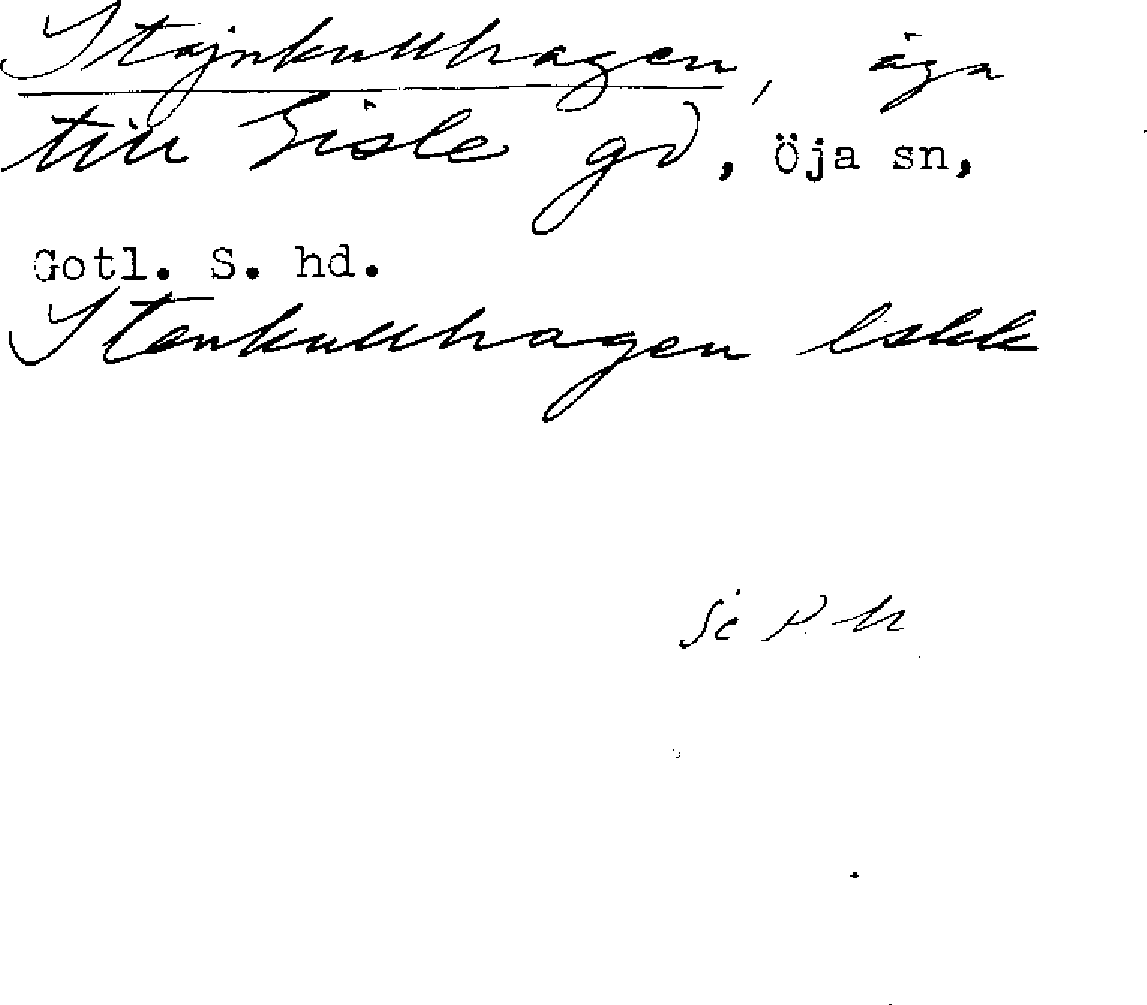 Stajnkullhagen, äga
till Gisle gd, Öja sn,
Gotl. S. hd.
Stenkullhagen